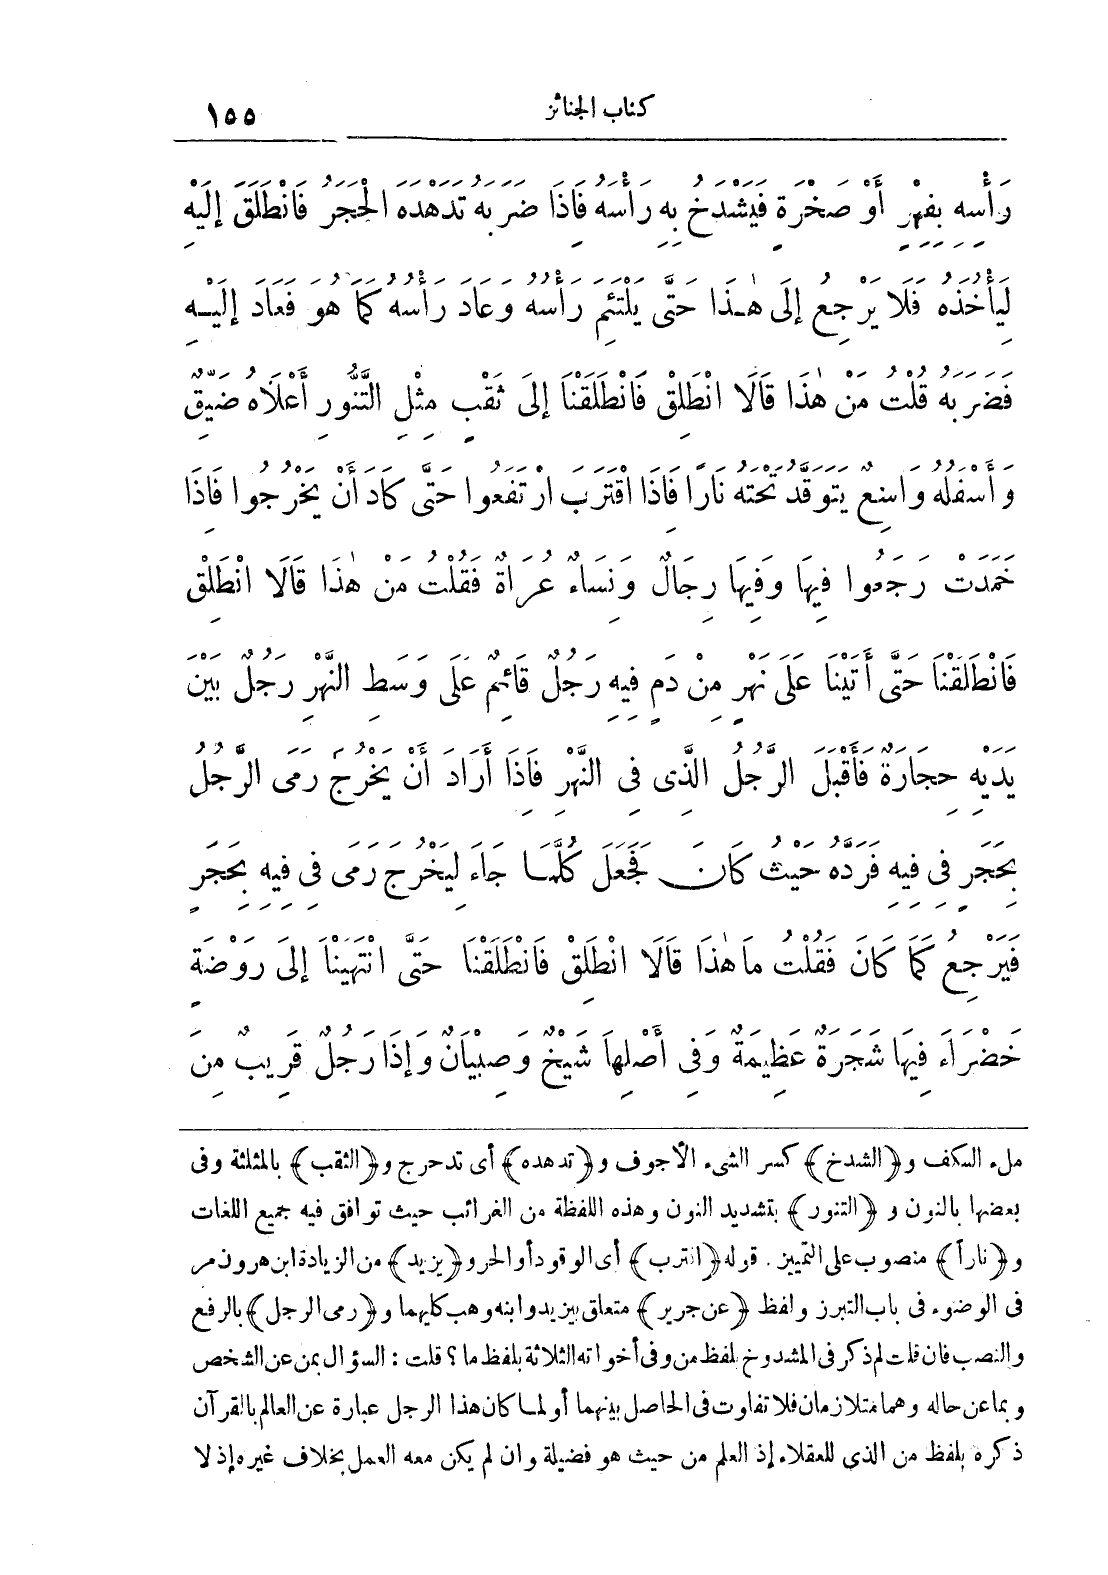 كتاب الجنائز ١٥٥
رَأْسِهِ بِفِهْرٍ أَوْ صَخْرَةٍ فَيَشْدَخُ بِهِ رَأْسَهُ فَاذَا ضَرَبَهُ تَدَهْدَهَ الْحَجَرُ فَانْطَلَقَ إِلَيْهِ
لِيَأْخُذَهُ فَلَا يَرْجِعُ إِلَى هٰذَا حَتَّى يَلْتَئِمَ رَأْسُهُ وَعَادَ رَأْسُهُ كَمَا هُوَ فَعَادَ إِلَيْهِ
فَضَرَبَهُ قُلْتُ مَنْ هٰذَا قَالَا انْطَلِقْ فَانْطَلَقْنَا إِلَى ثَقْبٍ مِثْلِ التَّنُّورِ أَعْلَاهُ ضَيِّقٌ
وَأَسْفَلُهُ وَاسِعٌ يَتَوَقَّدُ تَحْتَهُ نَارًا فَاذَا اقْتَرَبَ ارْتَفَعُوا حَتَّى كَادَ أَنْ يَخْرُجُوا فَاذَا
خَمَدَتْ رَجَعُوا فِيهَا وَفِيهَا رِجَالٌ وَنِسَاءٌ عُرَاةٌ فَقُلْتُ مَنْ هٰذَا قَالَا انْطَلِقْ
فَانْطَلَقْنَا حَتَّى أَتَيْنَا عَلَى نَهْرٍ مِنْ دَمٍ فِيهِ رَجُلٌ قَائِمٌ عَلَى وَسَطِ النَّهْرِ رَجُلٌ بَيْنَ
يَدَيْهِ حِجَارَةٌ فَأَقْبَلَ الرَّجُلُ الَّذِى فِى النَّهْرِ فَاذَا أَرَادَ أَنْ يَخْرُجَ رَمَى الرَّجُلُ
بِحَجَرٍ فِى فِيهِ فَرَدَّهُ حَيْثُ كَانَ فَجَعَلَ كُلَّمَا جَاءَ لِيَخْرُجَ رَمَى فِى فِيهِ بِحَجَرٍ
فَيَرْجِعُ كَمَا كَانَ فَقُلْتُ مَا هٰذَا قَالَا انْطَلِقْ فَانْطَلَقْنَا حَتَّى انْتَهَيْنَا إِلَى رَوْضَةٍ
خَضْرَاءَ فِيهَا شَجَرَةٌ عَظِيمَةٌ وَفِى أَصْلِهَا شَيْخٌ وَصِبْيَانٌ وَإِذَا رَجُلٌ قَرِيبٌ مِنَ
ملء الكف و﴿الشدخ﴾ كسر الشىء الأجوف و﴿تدهده﴾ أى تدحرج و﴿الثقب﴾ بالمثلثة وفى
بعضها بالنون و ﴿التنور﴾ بتشديد النون وهذه اللفظة من الغرائب حيث توافق فيه جميع اللغات
و﴿ناراً﴾ منصوب على التمييز . قوله ﴿اقترب﴾ أى الوقود أو الحر و﴿يزيد﴾ من الزيادة ابن هرون مر
فى الوضوء فى باب التبرز ولفظ ﴿عن جرير﴾ متعلق بيزيد وابنه وهب كليهما و﴿رمى الرجل﴾ بالرفع
والنصب فان قلت لم ذكر فى المشدوخ بلفظ من وفى أخواته الثلاثة بلفظ ما؟ قلت : السؤال بمن عن الشخص
وبما عن حاله وهما متلازمان فلا تفاوت فى الحاصل بينهما أو لما كان هذا الرجل عبارة عن العالم بالقرآن
ذكره بلفظ من الذى للعقلاء إذ العلم من حيث هو فضيلة وان لم يكن معه العمل بخلاف غيره إذ لا